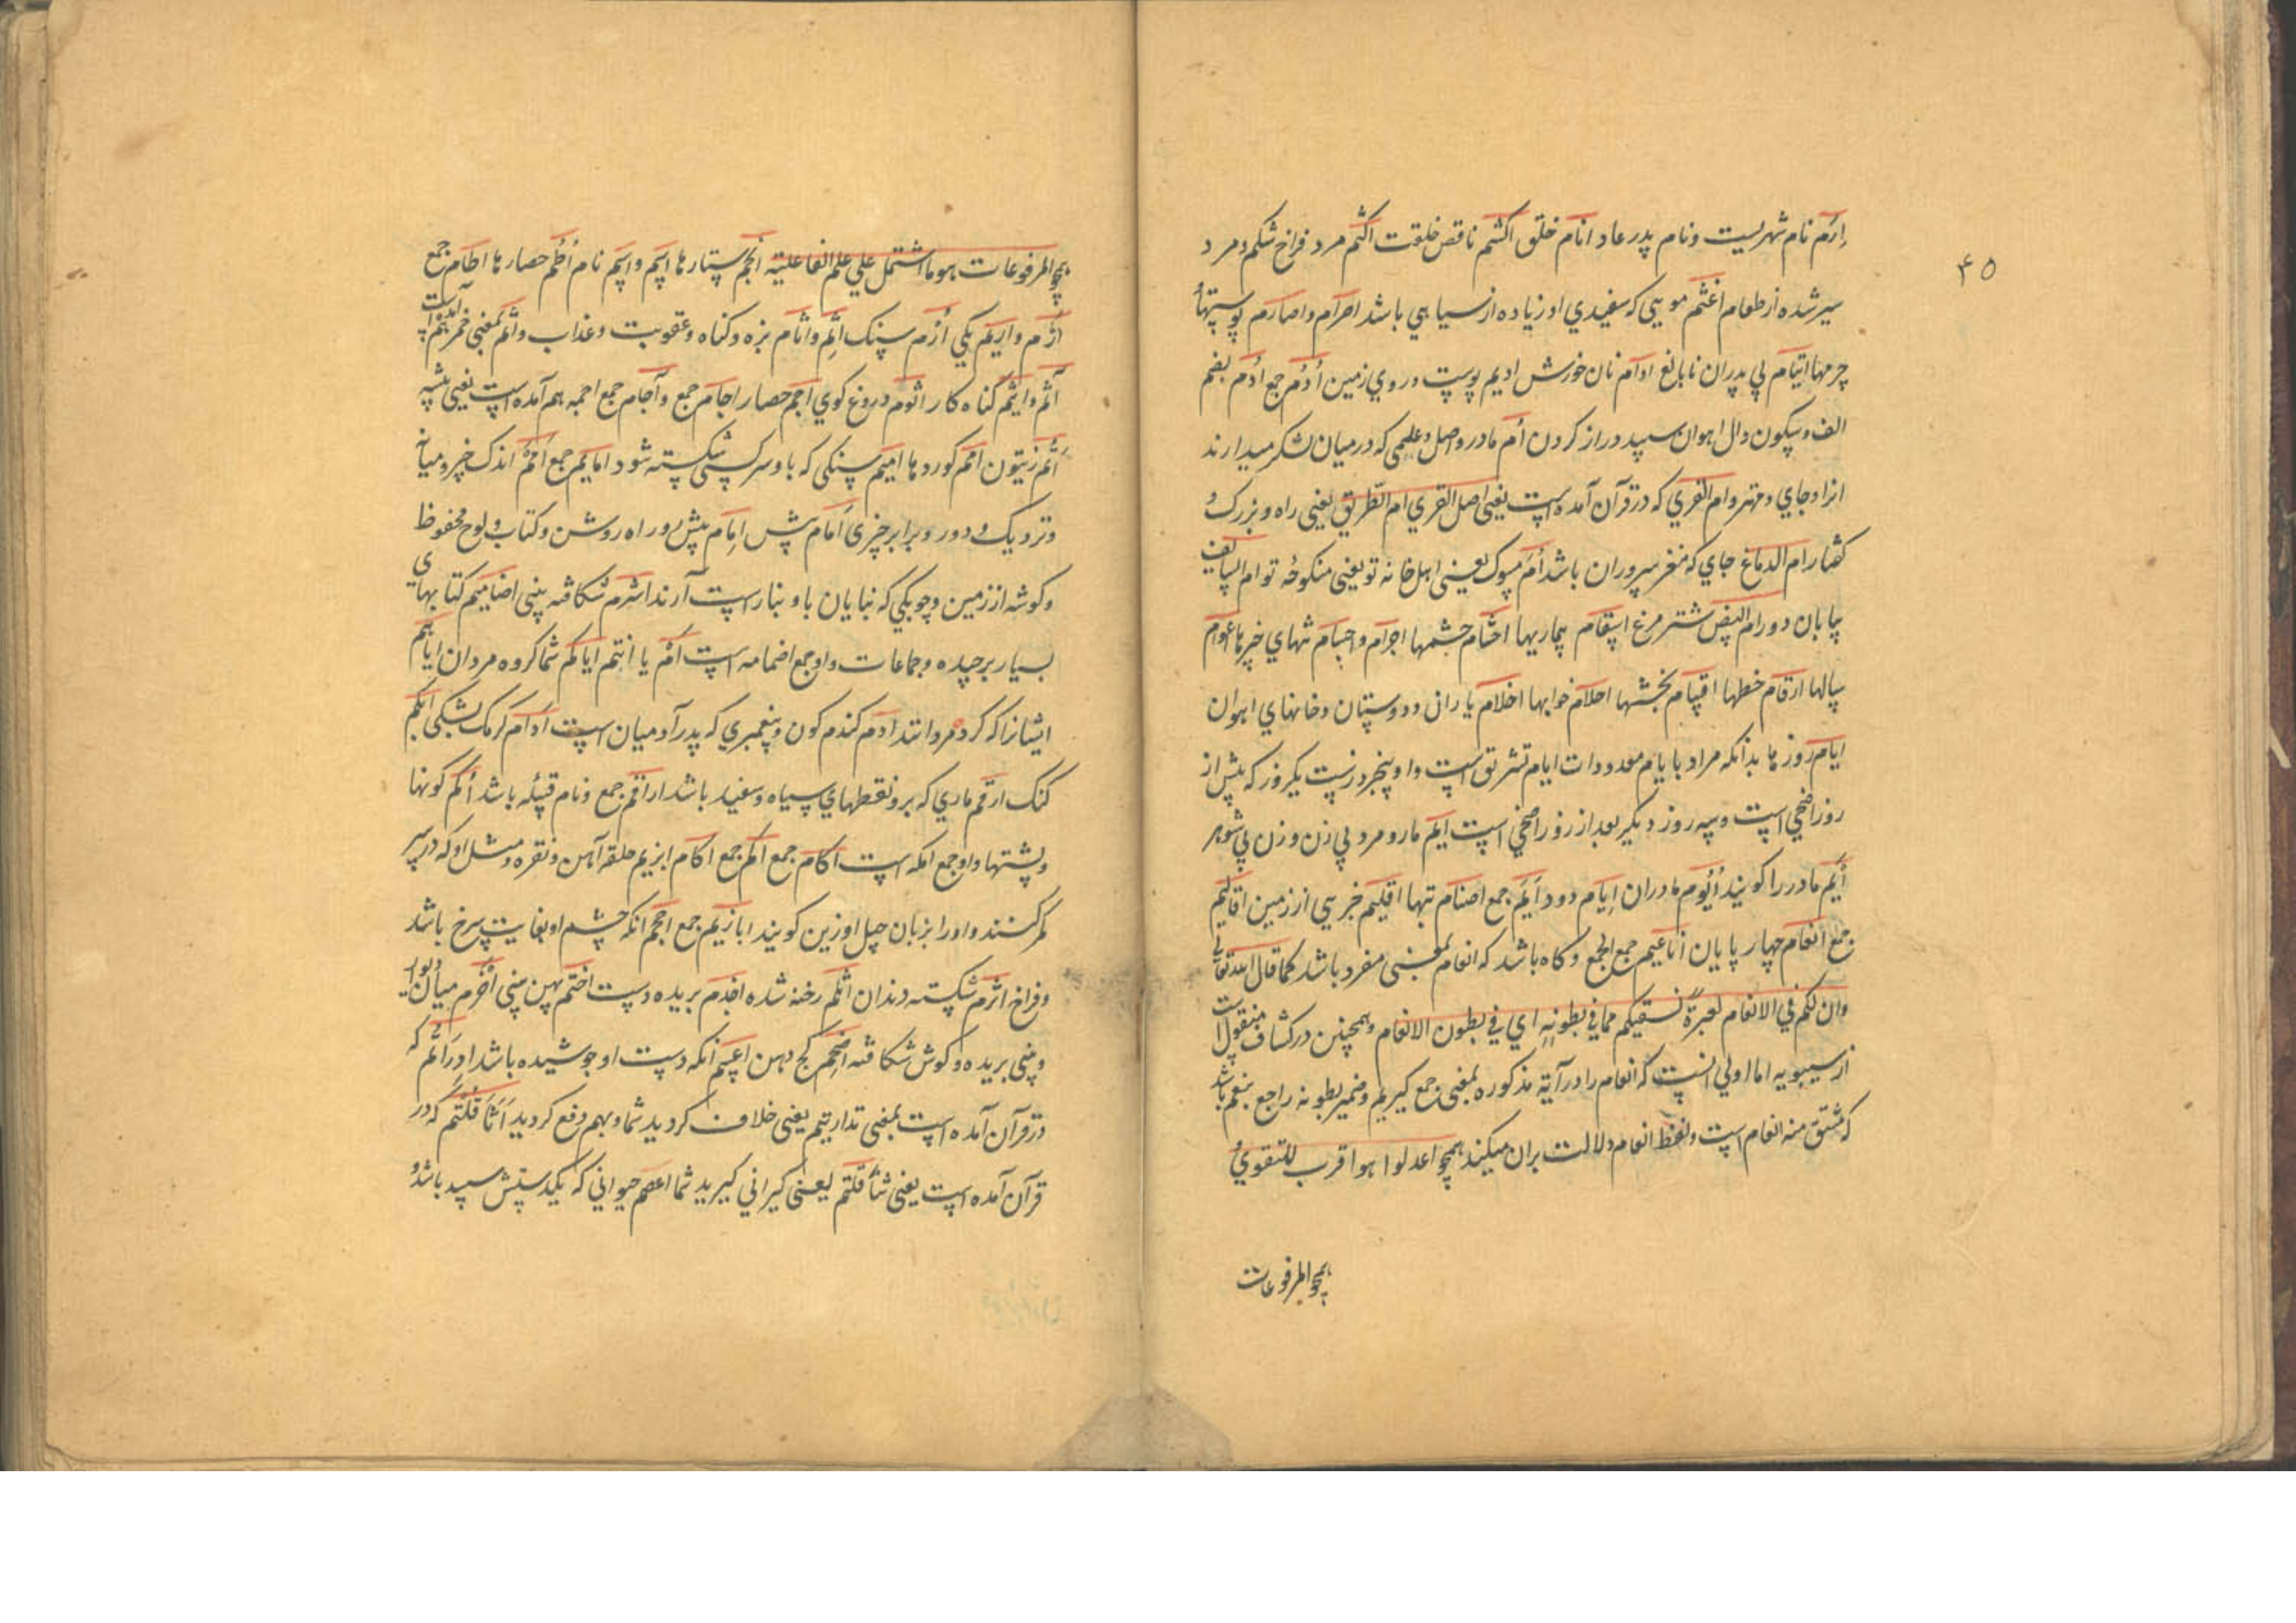 ۴۵
اِرَم نام شهریست ونام پدر عاد انام خلق اکشم ناقص خلقت اکثم مرد فراخ شکم ومرد
سیر شده از طعام اغثم مویی که سفیدی او زیاده از سیاهی باشد اصرام واصارم پوستها
چرمها ایتام بی پدران نابالغ ادام نان خورش ادیم پوست وروی زمین اُدُم جمع اُدم بضم
الف وسکون دال اهوان سپید دراز کردن اُم مادر واصل وعلمی که درمیان لشکر میدارند
انرا وجای ومهتر وام القری که درقرآن آمده است یعنی اصل القری ام الطریق یعنی راه وبزرک
کفتار ام الدماغ جای که مغز سر وران باشد اُم مثوک یعنی اهل خانه تو یعنی منکوحه تو ام
بیابان دور ام البیض شتر مرغ اسقام بیماریها احشام حشمها اجرام واجسام تنهای چیزها اعوام
سالها ارقام خطها اقسام بخشها احلام خوابها اخلام یاران ودوستان وخانهای اهوان
ایام روزها بدانکه مراد بایام معدودات ایام تشریق است واو پنجروزست یکروز که پیش از
روز اضحی است وسه روز دیکر بعد از روز اضحی است ایم مار ومرد بی زن وزن بی شوهر
اَیِّم مادر را کویند اُیُوم مادران اِیام دود اَیَم جمع اصنام بتها اقلیم خبر سی از زمین اقالیم
جمع انعام چهار پایان اناعیم جمع الجمع وکاه باشد که انعام بمعنی مفرد باشد کما قال الله تعالی
وان لکم فی الانعام لعبرة نسقیکم مما فی بطونه ای فی بطون الانعام وهمچنین درکشاف منقول است
از سیبویه اما اولی آنست که انعام را درآیة مذکوره بمعنی جمع کیریم وضمیر بطونه راجع بنعم باشد
که مشتق منه انعام است ولفظ انعام دلالت بران میکند همچو اعدلوا هو اقرب للتقوی و
همچو المرفوعات
همچو المرفوعات هو ما اشتمل علی علم الفاعلیة انجم ستارها اسم واسم نام اُطُم حصارها اطام جمع
اَرِم واریم یکی اُرَم سنک اثم واثام بزه وکناه وعقوبت وعذاب واثم بمعنی خمر هم آمده است
آثم واثیم کناه کار اثوم دروغ کوی اجم حصار اجام جمع وآجام جمع اجمه هم آمده است یعنی بیشه
اُتُم زیتون امم کوروها امیم سنکی که باو سر کسی شکسته شود امایم جمع اَمَم اندک چیز ومیان
ونزدیک ودور وبرابر چیزی اَمام پیش اِمام پیش رو راه روشن وکتاب ولوح محفوظ
وکوشه از زمین وچوبکی که بنایان باو بنا راست آرند اشرم شکافته بینی اضامیم کتابهای
بسیار برچیده وجماعات واو جمع اضمامه است اَنتُم یا انتم ایاکم شما کروه مردان ایاهم
ایشانرا که کروه مردانند ادم کندم کون وپیغمبری که پدر آدمیان است اُدام کرمک بشکی ابکم
کنک ارقم ماری که برو نقطهای سیاه وسفید باشد اراقم جمع ونام قبیله باشد اکم کونها
وپشتها واو جمع اکمه است اکام جمع اکم جمع اکام ابزیم حلقه آهن ونقره ومثل او که درسر
کمر کنند واورا بزبان جیل اوزین کویند ابازیم جمع اجم انکه چشم او بغایت سرخ باشد
وفراخ اثرم شکسته دندان اثلم رخنه شده اجذم بریده دست اخثم پهن بینی اخرم میان دیوار
وبینی بریده وکوش شکافته اضجم کج دهن اعسم انکه دست او جوشیده باشد ادراتم که
درقرآن آمده است بمعنی تدارأتم یعنی خلاف کردید شما وبهم دفع کردید اثاقلتم که در
قرآن آمده است یعنی تثاقلتم یعنی کیرانی کیرید شما اعصم حیوانی که یکدستش سپید باشد و